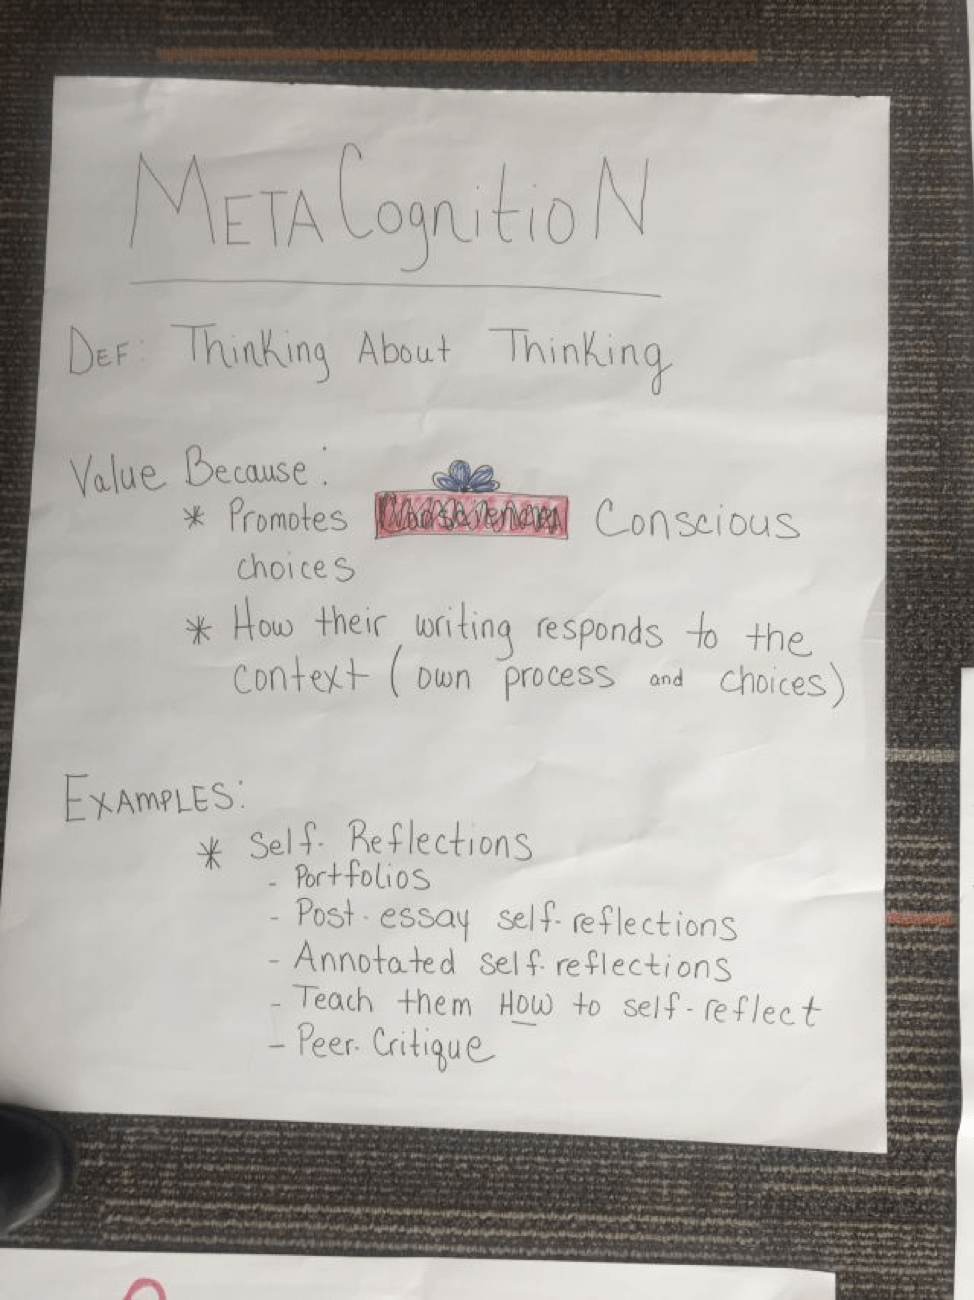 METACognitioN
DEF: Thinking About Thinking
Value Because:
* Promotes Conscious
choices
* How their writing responds to the
context (own process and choices)
EXAMPLES:
* Self-Reflections
- Portfolios
- Post-essay self-reflections
- Annotated self-reflections
- Teach them HOW to self-reflect
- Peer-Critique